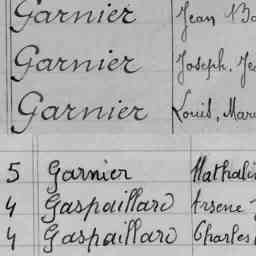 Garnier Jean
Garnier Joseph, Je
Garnier Louis, Mar
5 Garnier Mathali
4 Gaspaillard Arsene
4 Gaspaillard Charles